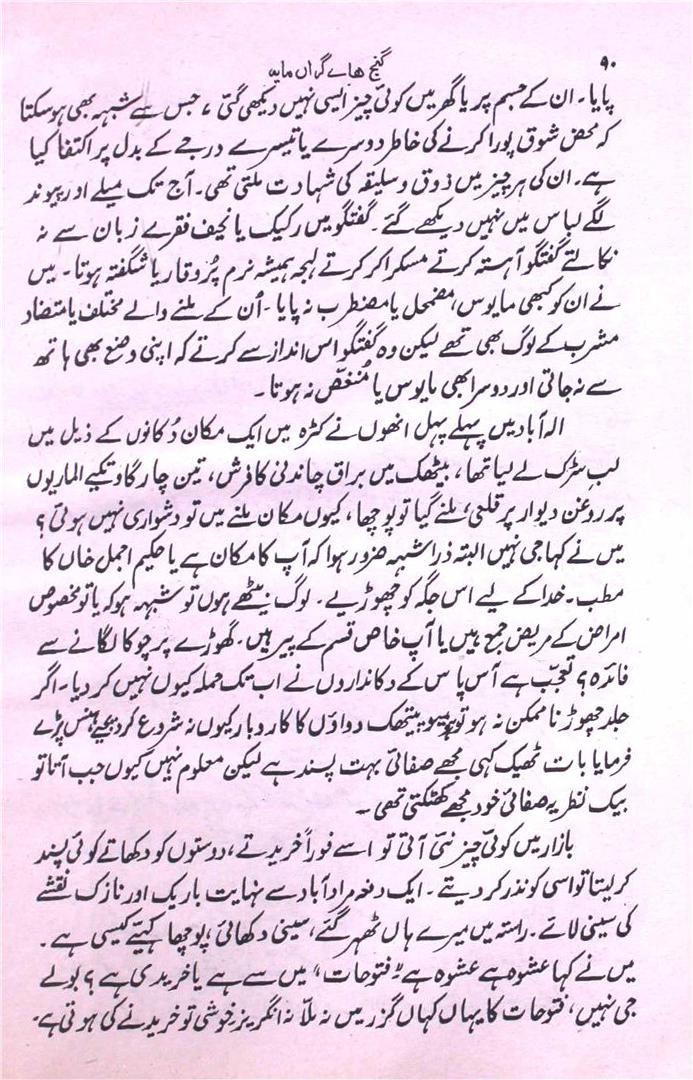 ۹۰
گنج ھاے گراں مایہ
پایا۔ ان کے جسم پر یا گھر میں کوئی چیز ایسی نہیں دیکھی گئی، جس سے شبہہ بھی ہو سکتا
کہ محض شوق پورا کرنے کی خاطر دوسرے یا تیسرے درجے کے بدل پر اکتفا کیا
ہے۔ ان کی ہر چیز میں ذوق و سلیقہ کی شہادت ملتی تھی۔ آج تک میلے اور پیوند
لگے لباس میں نہیں دیکھے گئے۔ گفتگو میں رکیک یا نحیف فقرے زبان سے نہ
نکالتے گفتگو آہستہ کرتے مسکرا کر کرتے لہجہ ہمیشہ نرم پُر وقار یا شگفتہ ہوتا۔ میں
نے ان کو کبھی مایوس، مضمحل یا مضطرب نہ پایا۔ اُن کے ملنے والے مختلف یا متضاد
مشرب کے لوگ بھی تھے لیکن وہ گفتگو اس انداز سے کرتے کہ اپنی وضع بھی ہاتھ
سے نہ جاتی اور دوسرا بھی مایوس یا مُنغّص نہ ہوتا۔
الہ آباد میں پہلے پہل انھوں نے کٹرہ میں ایک مکان دُکانوں کے ذیل میں
لب سڑک لے لیا تھا، بیٹھک میں براق چاندنی کا فرش، تین چار گاؤ تکیے الماریوں
پر روغن دیوار پر قلعی، ملنے گیا تو پوچھا، کیوں مکان ملنے میں تو دشواری نہیں ہوئی؟
میں نے کہا جی نہیں البتہ ذرا شبہہ ضرور ہوا کہ آپ کا مکان ہے یا حکیم اجمل خاں کا
مطب۔ خدا کے لیے اس جگہ کو چھوڑیے۔ لوگ بیٹھے ہوں تو شبہہ ہو کہ یا تو مخصوص
امراض کے مریض جمع ہیں یا آپ خاص قسم کے پیر ہیں۔ گھوڑے پر چوکا لگانے سے
فائدہ؟ تعجّب ہے آس پاس کے دکانداروں نے اب تک حملہ کیوں نہیں کر دیا۔ اگر
جلد چھوڑنا ممکن نہ ہو تو ہیمیو پیتھک دواؤں کا کاروبار کیوں نہ شروع کر دیجیے، ہنس پڑے
فرمایا بات ٹھیک کہی مجھے صفائی بہت پسند ہے لیکن معلوم نہیں کیوں جب آتا تو
بیک نظریہ صفائی خود مجھے کھٹکتی تھی۔
بازار میں کوئی چیز نئی آتی تو اسے فوراً خریدتے، دوستوں کو دکھاتے کوئی پسند
کر لیتا تو اسی کو نذر کر دیتے۔ ایک دفعہ مراد آباد سے نہایت باریک اور نازک نقشے
کی سینی لائے۔ راستہ میں میرے ہاں ٹھہر گئے، سینی دکھائی، پوچھا کہیئے کیسی ہے۔
میں نے کہا عشوہ ہے عشوہ ہے "فتوحات" میں سے ہے یا خریدی ہے؟ بولے
جی نہیں، فتوحات کا یہاں کہاں گزر میں نہ ملّا نہ انگریز خوشی تو خریدنے کی ہوتی ہے۔